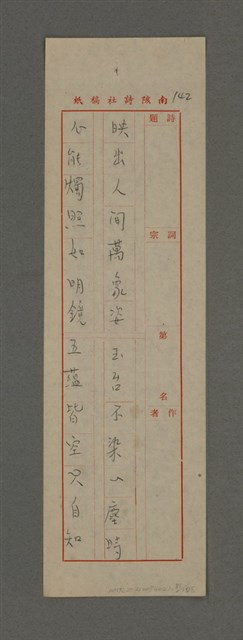 南陔詩社稿紙 142
詩題
詞宗
第 名
作者
映出人間萬象姿 玉台不染一塵時
心能燭照如明鏡 五蘊皆空只自知